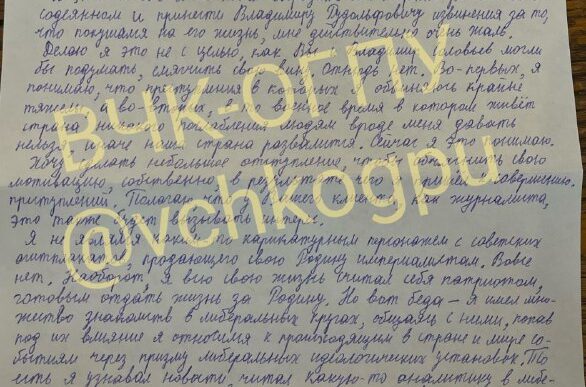 содеянном и принести Владимиру Рудольфовичу извинения за то,
что покушался на его жизнь, мне действительно очень жаль.
Делаю я это не с целью, как Вы и Владимир Соловьев могли
бы подумать, смягчить свою вину. Отнюдь нет. Во-первых, я
понимаю, что преступления в которых я обвиняюсь крайне
тяжелы, а во-вторых, в то военное время в котором живёт
страна никакого послабления людям вроде меня давать
нельзя, иначе наша страна развалится. Сейчас я это понимаю.
Хочу сделать небольшое отступление, чтобы пояснить свою
мотивацию, собственно в результате я пришел к совершению
преступлений. Полагаю, что у Вашего клиента, как журналиста,
это также будет вызывать интерес.
Я не являлся каким-то карикатурным персонажем с советских
агитплакатов, продающего свою Родину империалистам. Вовсе
нет. Наоборот, я всю свою жизнь считал себя патриотом,
готовым отдать жизнь за Родину. Но вот беда – я имел мно-
жество знакомств в либеральных кругах, общаясь с ними, попав
под их влияние я относился к происходящим в стране и мире со-
бытиям через призму либеральных идеологических установок. То
есть я узнавал новости, читал какую-то аналитику в либе-
ВЧК-ОГПУ
@vchkogpu